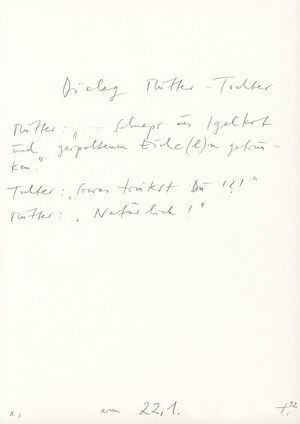 Dialog Mutter - Tochter
Mutter: „..... Schnaps aus Igelkot
und gespaltenen Eiche(l)n getrun-
ken."
Tochter: „Sowas trinkst Du ?!"
Mutter: „Natürlich!"
a, am 22,1.